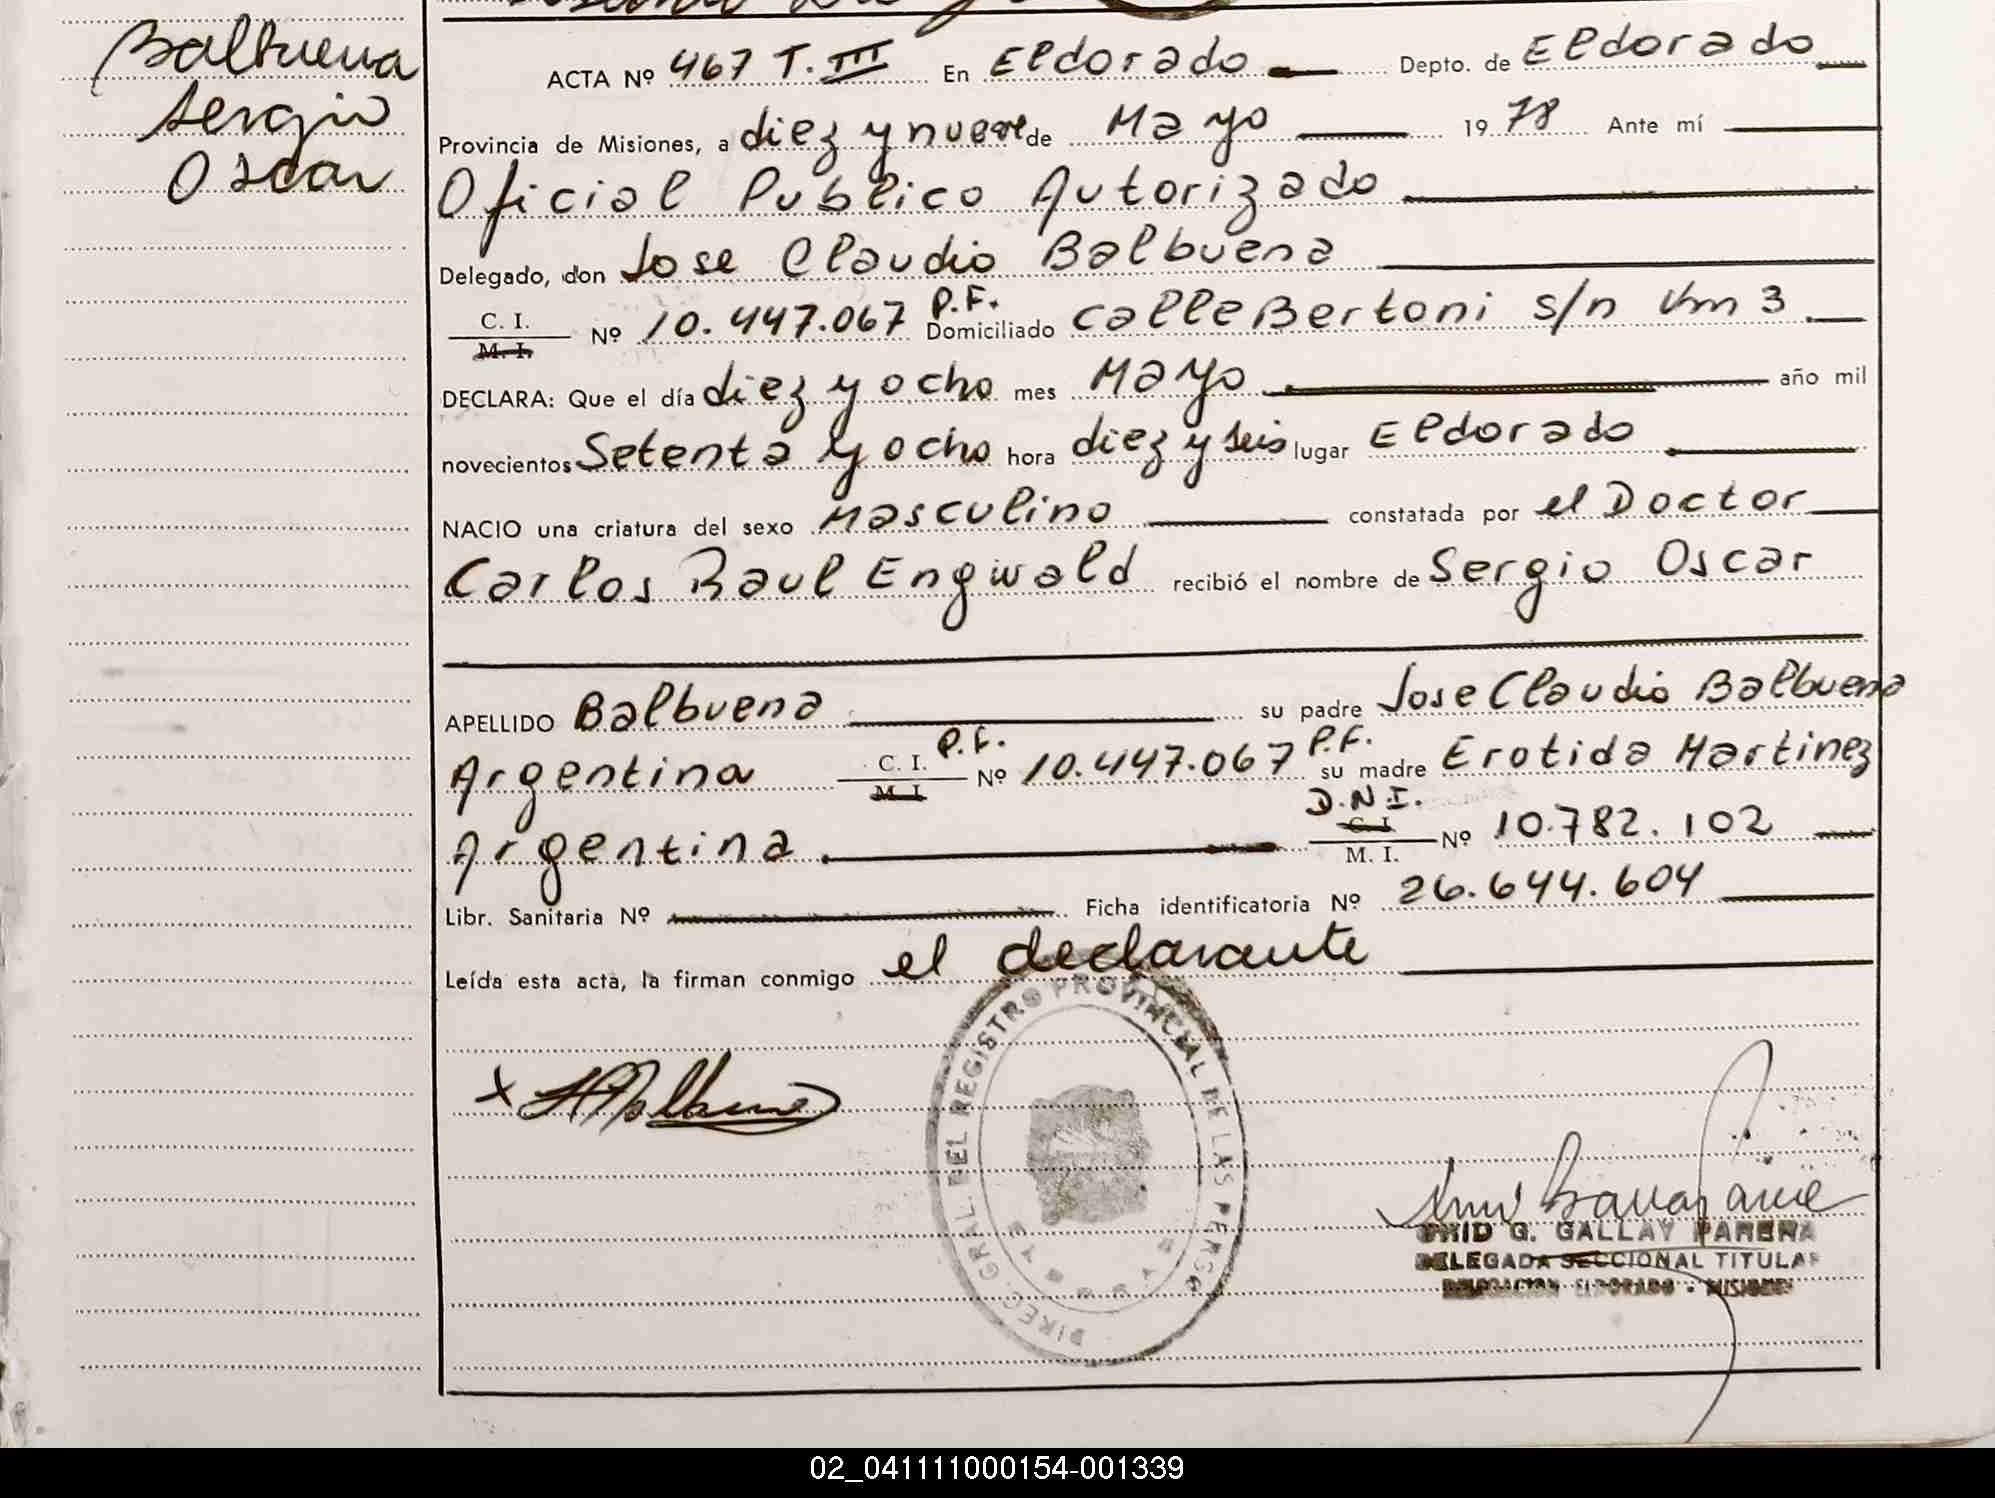 Balbuena
Sergio
Oscar
ACTA Nº 467 T. III En Eldorado Depto. de Eldorado
Provincia de Misiones, a diez y nueve de Mayo 1978 Ante mí
Oficial Publico Autorizado
Delegado, don Jose Claudio Balbuena
C. I. M. I. Nº 10.447.067 P.F. Domiciliado calle Bertoni s/n Km 3
DECLARA: Que el día diez y ocho mes Mayo año mil
novecientos Setenta y ocho hora diez y seis lugar Eldorado
NACIO una criatura del sexo Masculino constatada por el Doctor
Carlos Raul Engwald recibió el nombre de Sergio Oscar
APELLIDO Balbuena su padre Jose Claudio Balbuena
Argentina C. I. M. I. P.F. Nº 10.447.067 P.F. su madre Erotida Martinez
Argentina D.N.I. C. I. M. I. Nº 10.782.102
Libr. Sanitaria Nº Ficha identificatoria Nº 26.644.604
Leída esta acta, la firman conmigo el declarante
DIREC. GRAL. DEL REGISTRO PROVINCIAL DE LAS PERSO
G. GALLAY PARERA
DELEGADA SECCIONAL TITULAR
DELEGACION ELDORADO - MISIONES
02_041111000154-001339